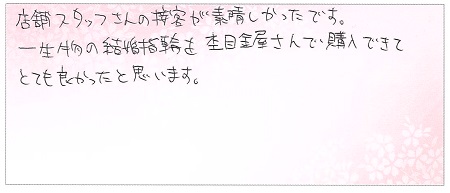 店舗スタッフさんの接客が素晴しかったです。
一生物の結婚指輪を杢目金屋さんで購入できて
とても良かったと思います。